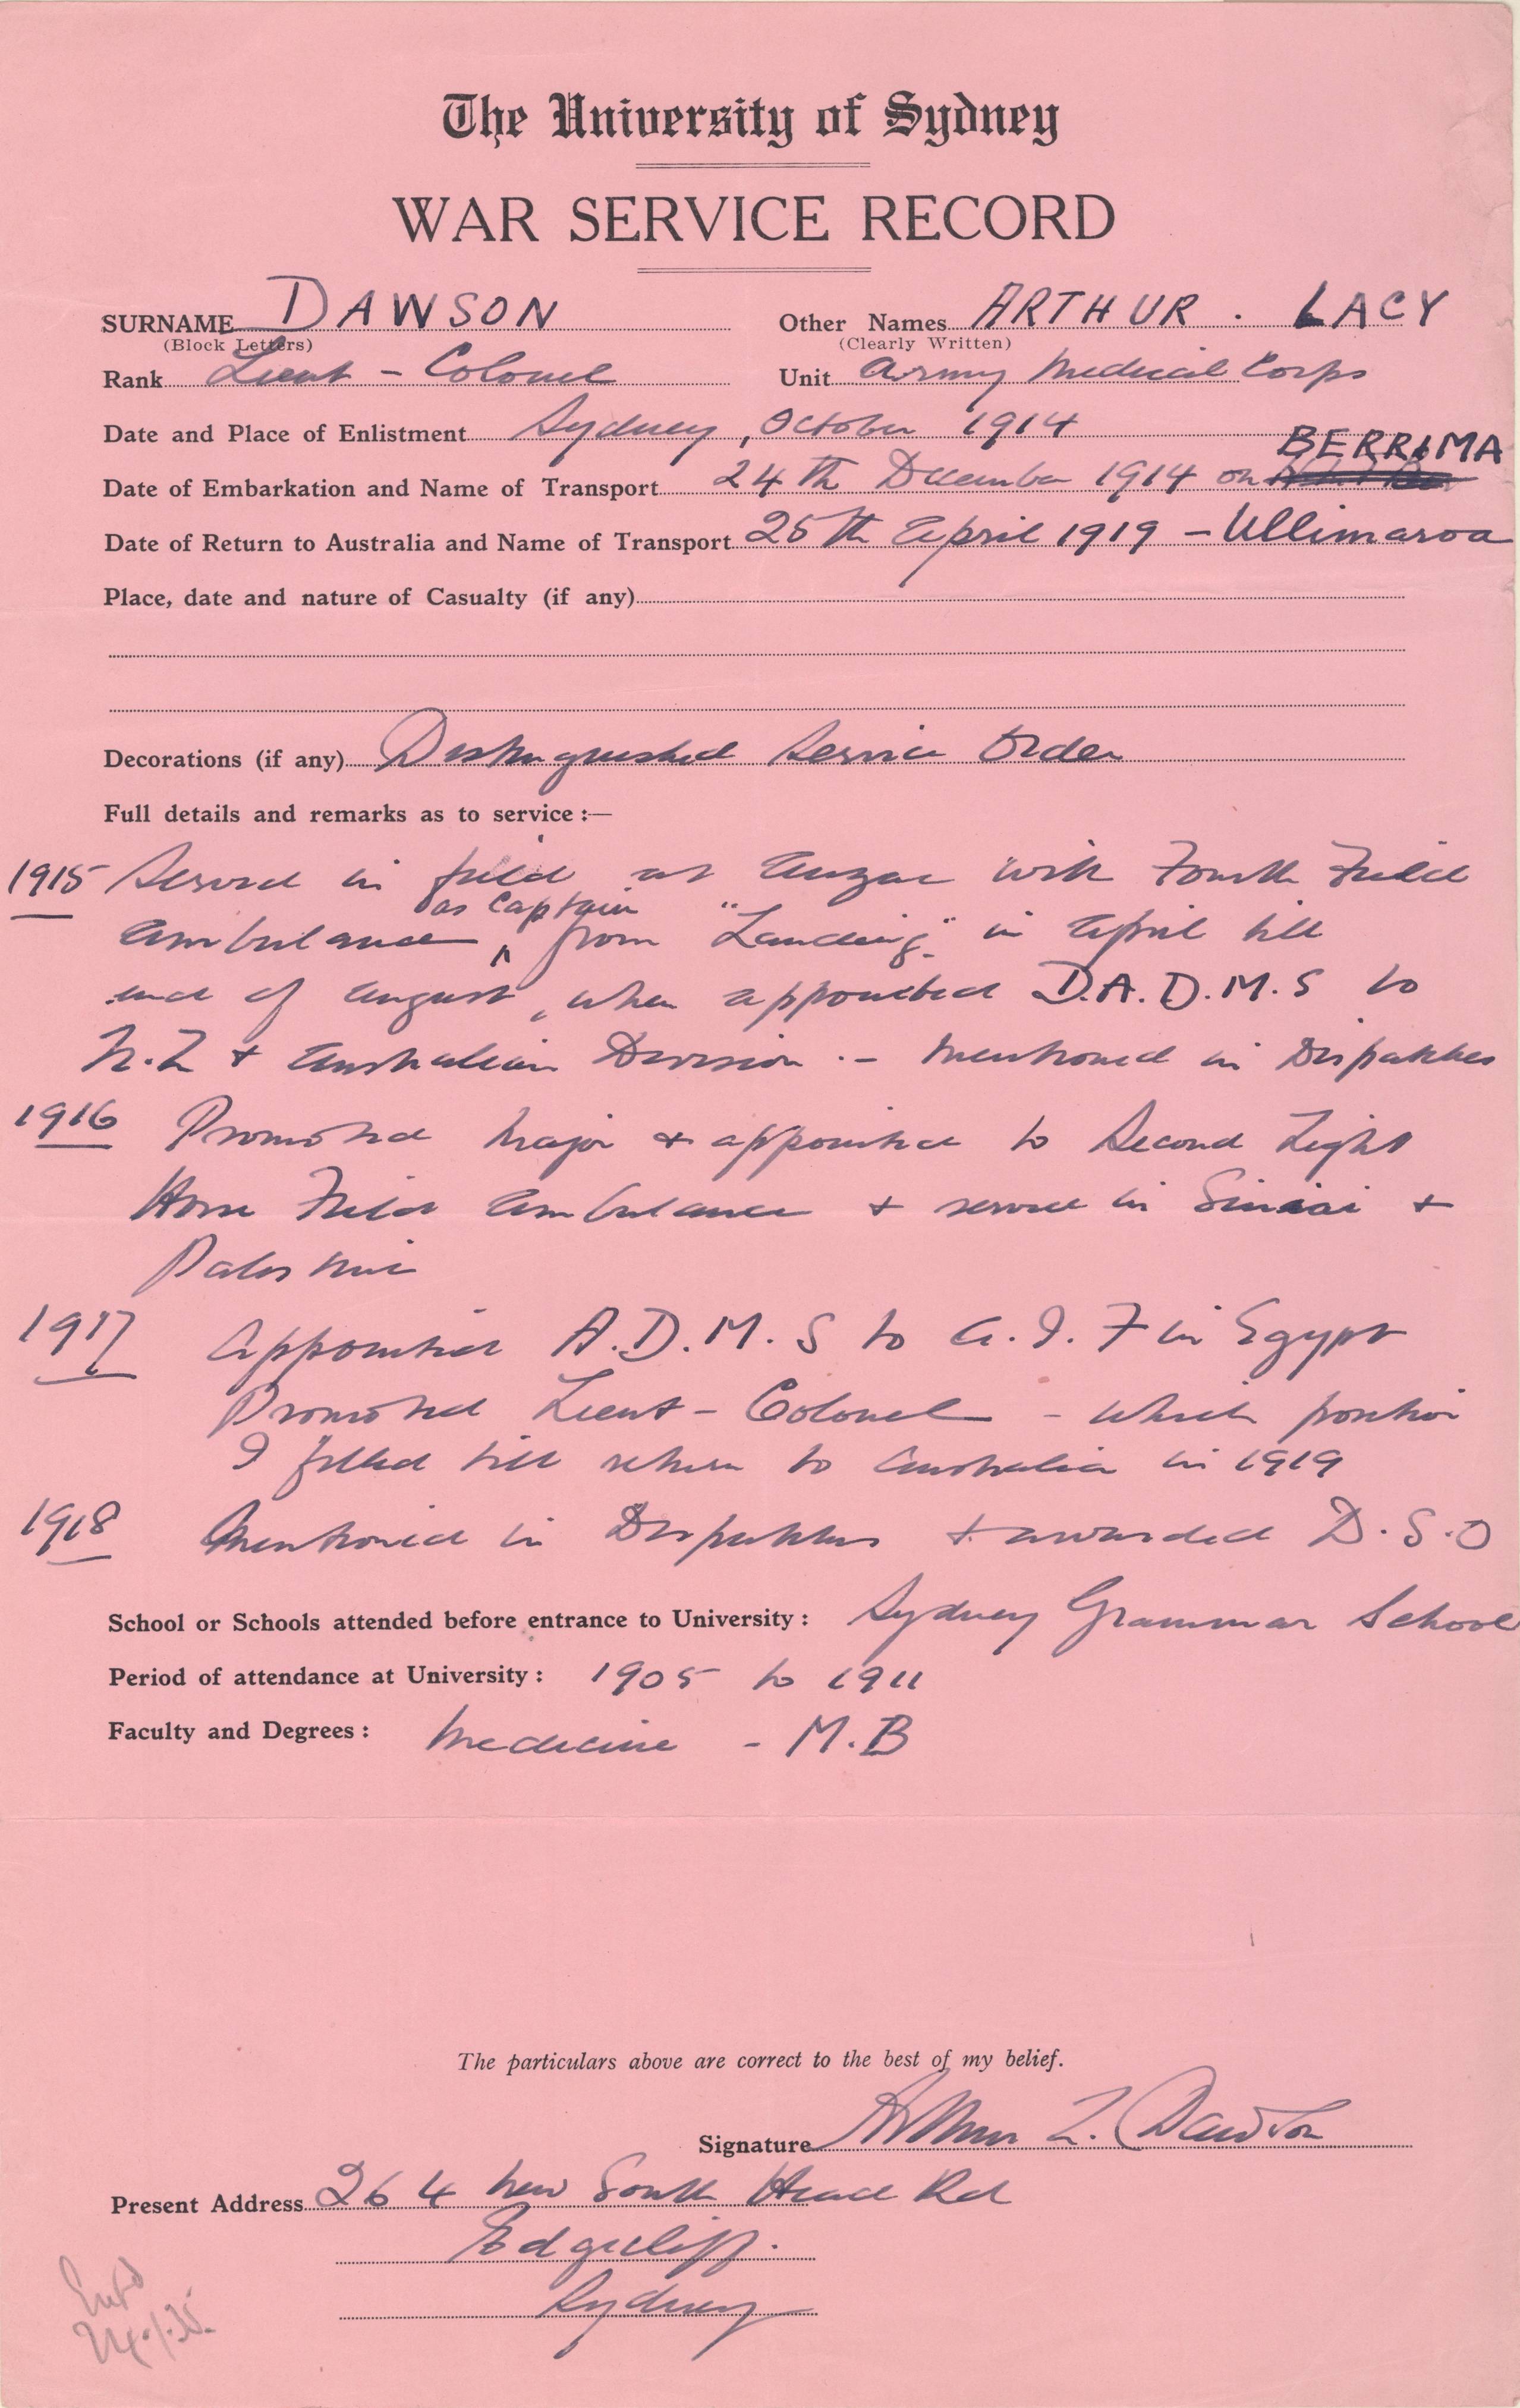 The University of Sydney
WAR SERVICE RECORD
SURNAME DAWSON Other Names ARTHUR . LACY
(Block Letters) (Clearly Written)
Rank Lieut - Colonel Unit Army Medical Corps
Date and Place of Enlistment Sydney, October 1914
BERRIMA
Date of Embarkation and Name of Transport 24th December 1914 on
Date of Return to Australia and Name of Transport 25th April 1919 - Ullimaroa
Place, date and nature of Casualty (if any)
Decorations (if any) Distinguished Service Order
Full details and remarks as to service :—
1915 Served in field at Anzac with Fourth Field
as Captain
Ambulance ^ from "Landing" in April till
end of August, when appointed D.A.D.M.S to
N.Z + Australian Division .- Mentioned in Dispatches
1916 Promoted Major + appointed to Second Light
Horse Field Ambulance + served in Sinai +
Palestine
1917 Appointed A.D.M.S to A.I.F in Egypt
Promoted Lieut - Colonel - which position
I filled till return to Australia in 1919
1918 Mentioned in Dispatches + awarded D.S.O
School or Schools attended before entrance to University : Sydney Grammar School
Period of attendance at University : 1905 to 1911
Faculty and Degrees : Medicine - M.B
The particulars above are correct to the best of my belief.
Signature Arthur L. Dawson
Present Address 264 New South Head Rd
Edgecliff.
Sydney